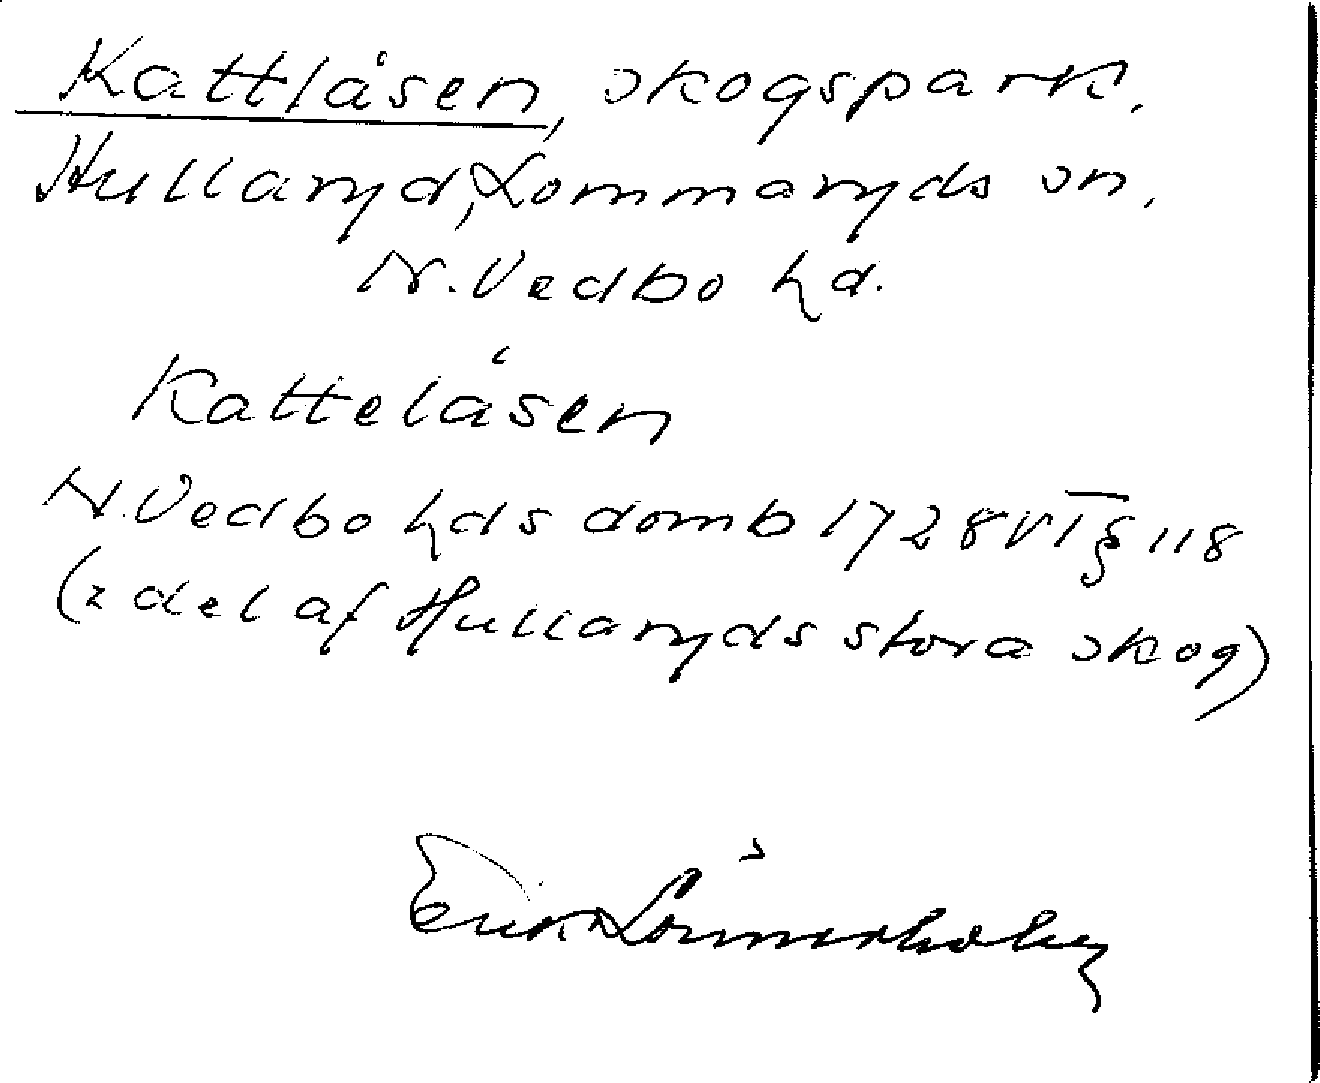 Kattlåsen, skogspark.
Hullaryd, Lommaryds sn.
N. Vedbo hd.
Kattelåsen
N. Vedbo hds domb 1728 VT § 118
(= del af Hullaryds stora skog)
Erik Lönnerholm